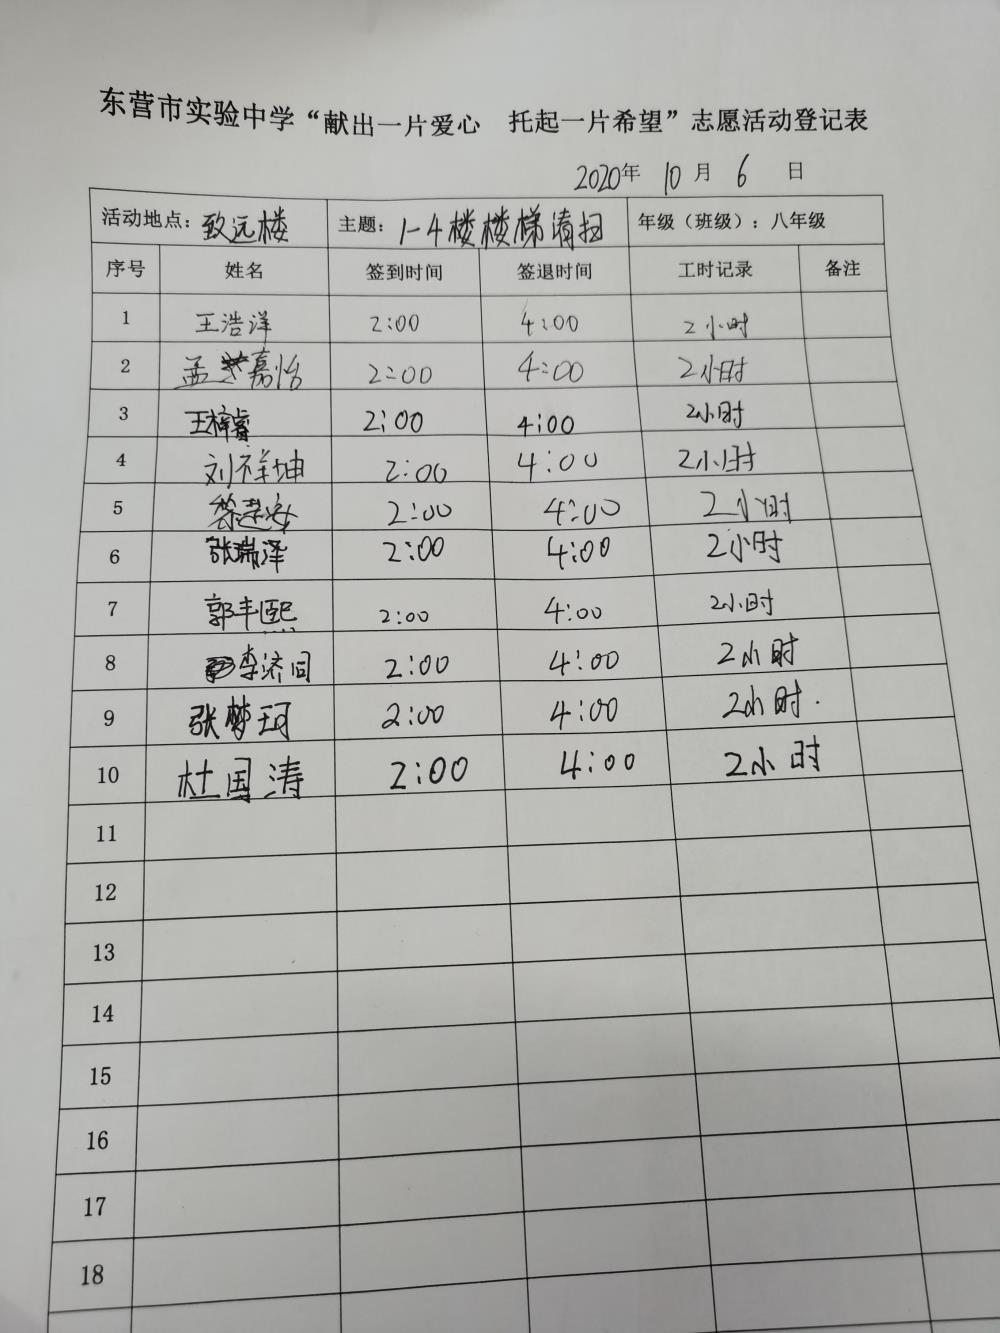 东营市实验中学“献出一片爱心 托起一片希望”志愿活动登记表
2020年 10月 6 日
活动地点：致远楼 主题：1-4楼楼梯清扫 年级（班级）：八年级
序号 姓名 签到时间 签退时间 工时记录 备注
1 王浩洋 2:00 4:00 2小时
2 孟嘉怡 2:00 4:00 2小时
3 王梓睿 2:00 4:00 2小时
4 刘祥坤 2:00 4:00 2小时
5 2:00 4:00 2小时
6 张瑞泽 2:00 4:00 2小时
7 郭丰熙 2:00 4:00 2小时
8 李济同 2:00 4:00 2小时
9 张梦珂 2:00 4:00 2小时.
10 杜国涛 2:00 4:00 2小时
11
12
13
14
15
16
17
18